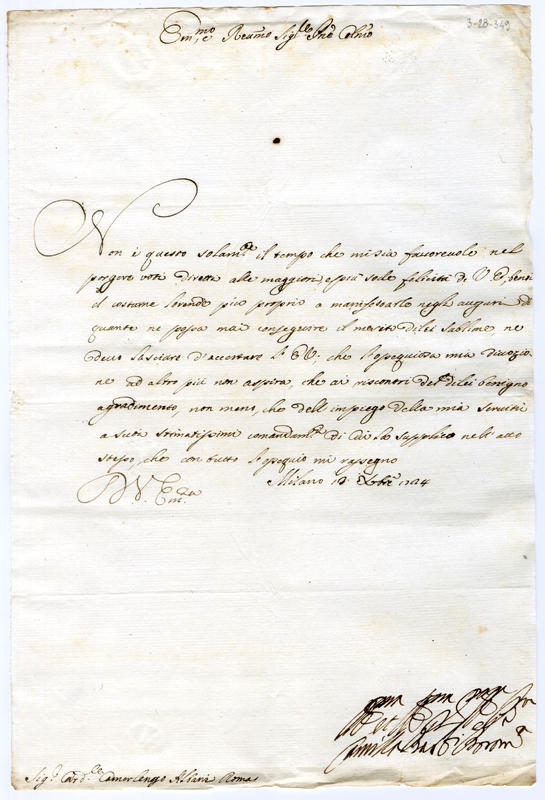 3-2B-349
Em.mo e Reumo Sig.re Pne Colmo
Non è questo solam.te il tempo che mi sia favorevole nel
porgere voti diretti alle maggiori, e più sode felicità di V E, benti
il costume lo rende più proprio a manifestarle negli auguri di
quante ne possa mai conseguire il merito di lei sublime ne
devo lasciare d'accertare l' E V, che l'ossequiosa mia divozio-
ne ad altro più non aspira, che ai riscontri del di lei benigno
agradimento, non meno, che dell'impiego della mia servitù
a suoi stimatissimi comandam.ti di cui La supplico nell'atto
stesso, che con tutto l'ossequio mi rassegno
D V. Em.za
Milano 13 Xbre 1724
Camilla
Sig.r Card.le Camerlengo Albani Roma